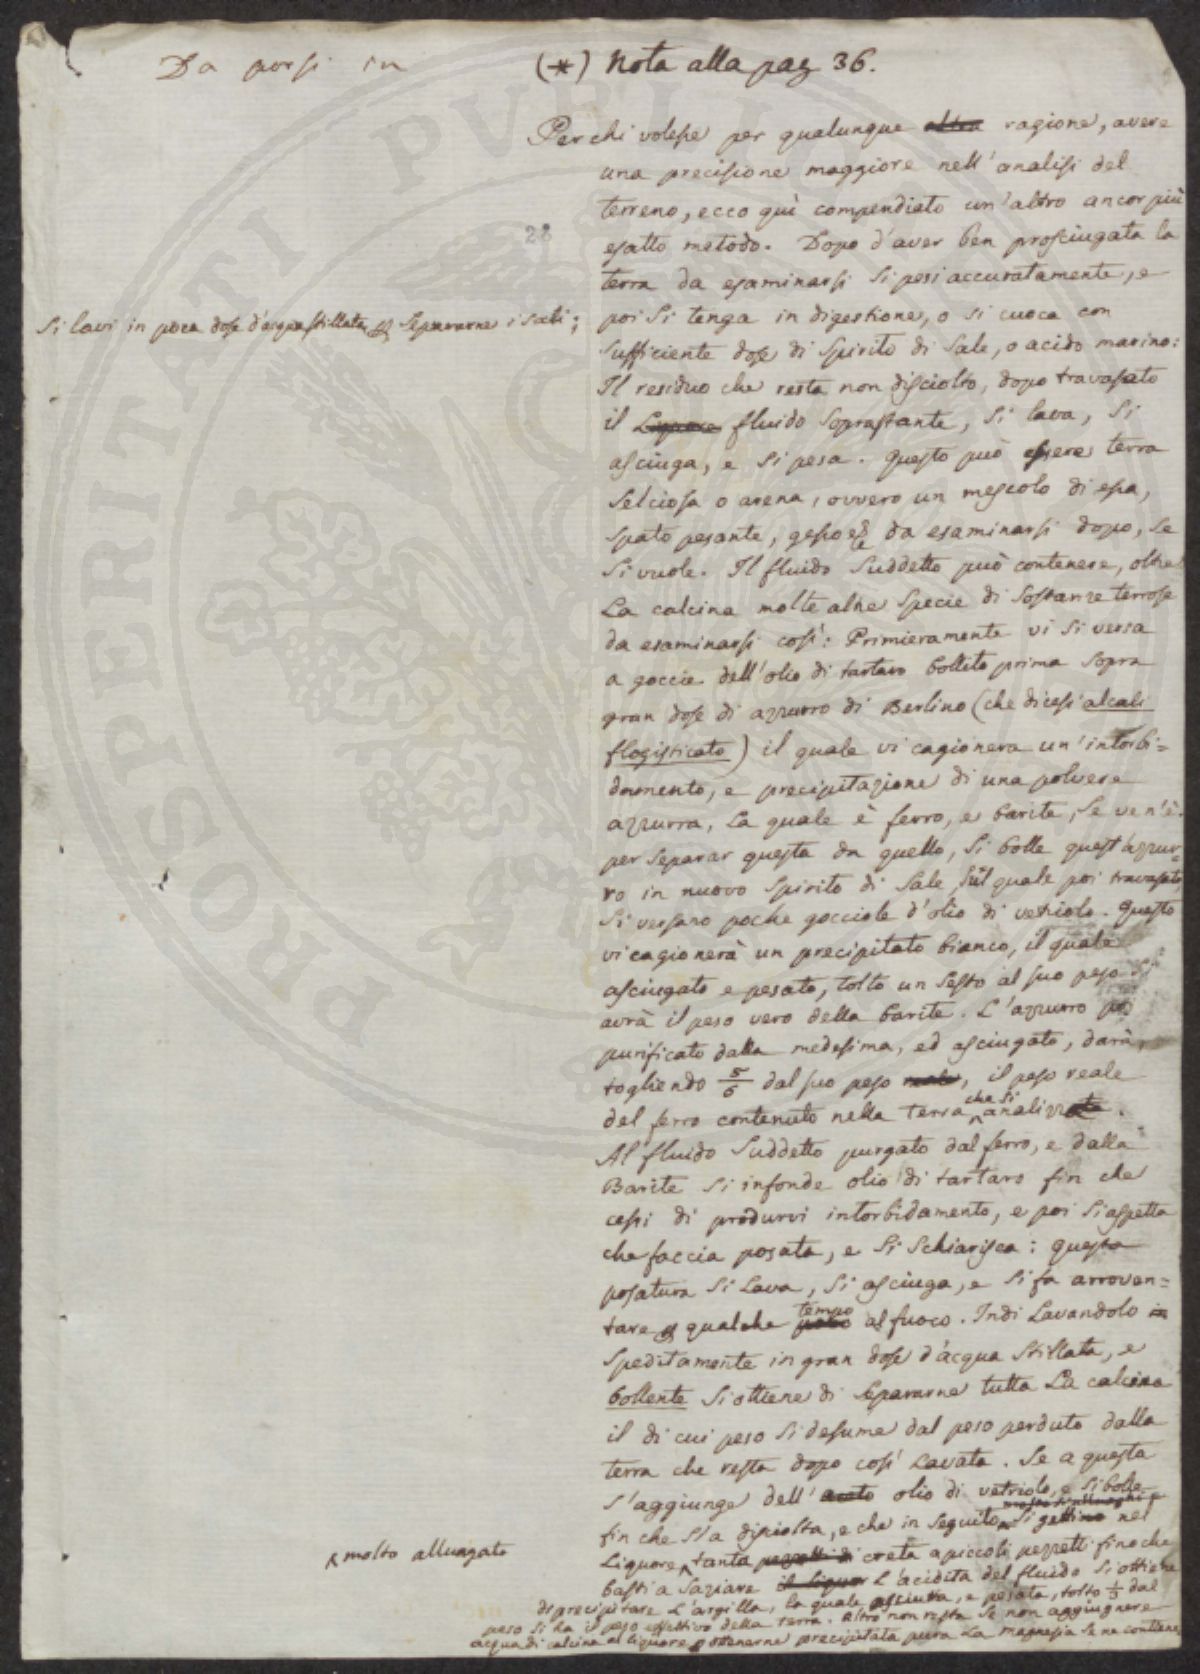 Da porsi in
(*) Nota alla pag 36.
Per chi volesse per qualunque altra ragione, avere
una precisione maggiore nell'analisi del
terreno, ecco quì compendiato un'altro ancor più
esatto metodo. Dopo d'aver ben prosciugata la
terra da esaminarsi si pesi accuratamente, e
poi si tenga in digestione, o si cuoca con
sufficiente dose di spirito di sale, o acido marino:
Si lavi in poca dose d'acqua stillata separarne i sali;
Il residuo che resta non disciolto, dopo travasato
il fluido soprastante, si lava, si
asciuga, e si pesa. Questo può essere terra
selciosa o arena, ovvero un mescolo di essa,
spato pesante, gesso &c da esaminarsi dopo, se
si vuole. Il fluido suddetto può contenere, oltre
la calcina molte altre specie di sostanze terrose
da esaminarsi così: Primieramente vi si versa
a goccie dell'olio di tartaro bollito prima sopra
gran dose di azzurro di Berlino (che dicesi alcali
flogisticato) il quale vi cagionera un'intorbi=
damento, e precipitazione di una polvere
azzurra, la quale è ferro, e barite, se ven'è.
per separar questa da quello, si bolle quest'azzur=
ro in nuovo spirito di sale, sul quale poi travasato
si versano poche gocciole d'olio di vetriolo. Questo
vi cagionerà un precipitato bianco, il quale
asciugato e pesato, tolto un sesto al suo peso si
avrà il peso vero della barite. L'azzurro poi
purificato dalla medesima, ed asciugato, darà,
togliendo 5/6 dal suo peso reale, il peso reale
del ferro contenuto nella terra che si analizza.
Al fluido suddetto purgato dal ferro, e dalla
Barite si infonde olio di tartaro fin che
cessi di produrvi intorbidamento, e poi si aspetta
che faccia posata, e si schiarisca: questa
posatura si lava, si asciuga, e si fa arroven=
tare qualche tempo al fuoco. Indi lavandolo in
speditamente in gran dose d'acqua stillata, e
bollente si ottiene di separarne tutta la calcina
il di cui peso si desume dal peso perduto dalla
terra che resta dopo così lavata. Se a questa
s'aggiunge dell' aceto olio di vetriolo, e si bolle
fin che sia disciolta, e che in seguito si gettino nel
molto allungato
liquore, tanta pezzetti di creta a piccoli pezzetti fino che
basti a saziare il liquor l'acidità del fluido si ottiene
di precipitare l'argilla, la quale asciutta, e pesata, tolto 1/3 dal
peso si ha il peso effettivo della terra. Altro non resta se non aggiugnere
acqua di calcina al liquore ottenerne precipitata pura la magnesia se ne contiene
28
PROSPERITATI PUBLICAE